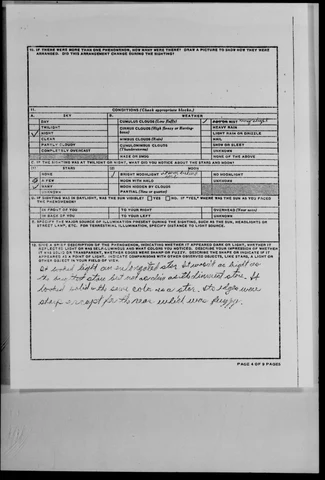 10. IF THERE WERE MORE THAN ONE PHENOMENON, HOW MANY WERE THERE? DRAW A PICTURE TO SHOW HOW THEY WERE ARRANGED. DID THIS ARRANGEMENT CHANGE DURING THE SIGHTING?
11. CONDITIONS (Check appropriate blocks.)
A. SKY B. WEATHER
DAY CUMULUS CLOUDS (Low fluffy)
TWILIGHT CIRRUS CLOUDS (High fleecy or Herringbone) HEAVY RAIN
NIGHT LIGHT RAIN OR DRIZZLE
CLEAR HAIL
PARTLY CLOUDY CUMULONIMBUS CLOUDS (Thunderstorms) SNOW OR SLEET
COMPLETELY OVERCAST UNKNOWN
HAZE OR SMOG NONE OF THE ABOVE
C. IF THE SIGHTING WAS AT TWILIGHT OR NIGHT, WHAT DID YOU NOTICE ABOUT THE STARS AND MOON?
(1) STARS (2) MOON
NONE BRIGHT MOONLIGHT NO MOONLIGHT
A FEW MOON WITH HALO UNKNOWN
MANY MOON HIDDEN BY CLOUDS
UNKNOWN PARTIAL (New or quarter)
D. IF SIGHTING WAS IN DAYLIGHT, WAS THE SUN VISIBLE? YES NO. IF "YES," WHERE WAS THE SUN AS YOU FACED THE PHENOMENON?
IN FRONT OF YOU TO YOUR RIGHT OVERHEAD (Near noon)
IN BACK OF YOU TO YOUR LEFT UNKNOWN
E. SPECIFY THE MAJOR SOURCE OF ILLUMINATION PRESENT DURING THE SIGHTING, SUCH AS THE SUN, HEADLIGHTS OR STREET LAMP, ETC. FOR TERRESTRIAL ILLUMINATION, SPECIFY DISTANCE TO LIGHT SOURCE.
12. GIVE A BRIEF DESCRIPTION OF THE PHENOMENON, INDICATING WHETHER IT APPEARED DARK OR LIGHT, WHETHER IT REFLECTED LIGHT OR WAS SELF-LUMINOUS AND WHAT COLORS YOU NOTICED. DESCRIBE YOUR IMPRESSION OF WHETHER IT WAS SOLID OR TRANSPARENT, WHETHER EDGES WERE SHARP OR FUZZY. DESCRIBE THE SHAPE OR INDICATE IF IT APPEARED AS A POINT OF LIGHT. INDICATE COMPARISONS WITH OTHER OBSERVED OBJECTS, LIKE STARS, A LIGHT OR OTHER OBJECT IN YOUR FIELD OF VIEW.
It looked light an elongated star. It wasn't as bright as
the star but not as as the star. It
looked solid with the same color as a star. Its edges were
sharp except for the rear which was fuzzy.
PAGE 4 OF 9 PAGES